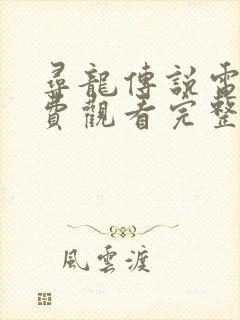 尋龍傳說電
費觀看完整
風雲渡